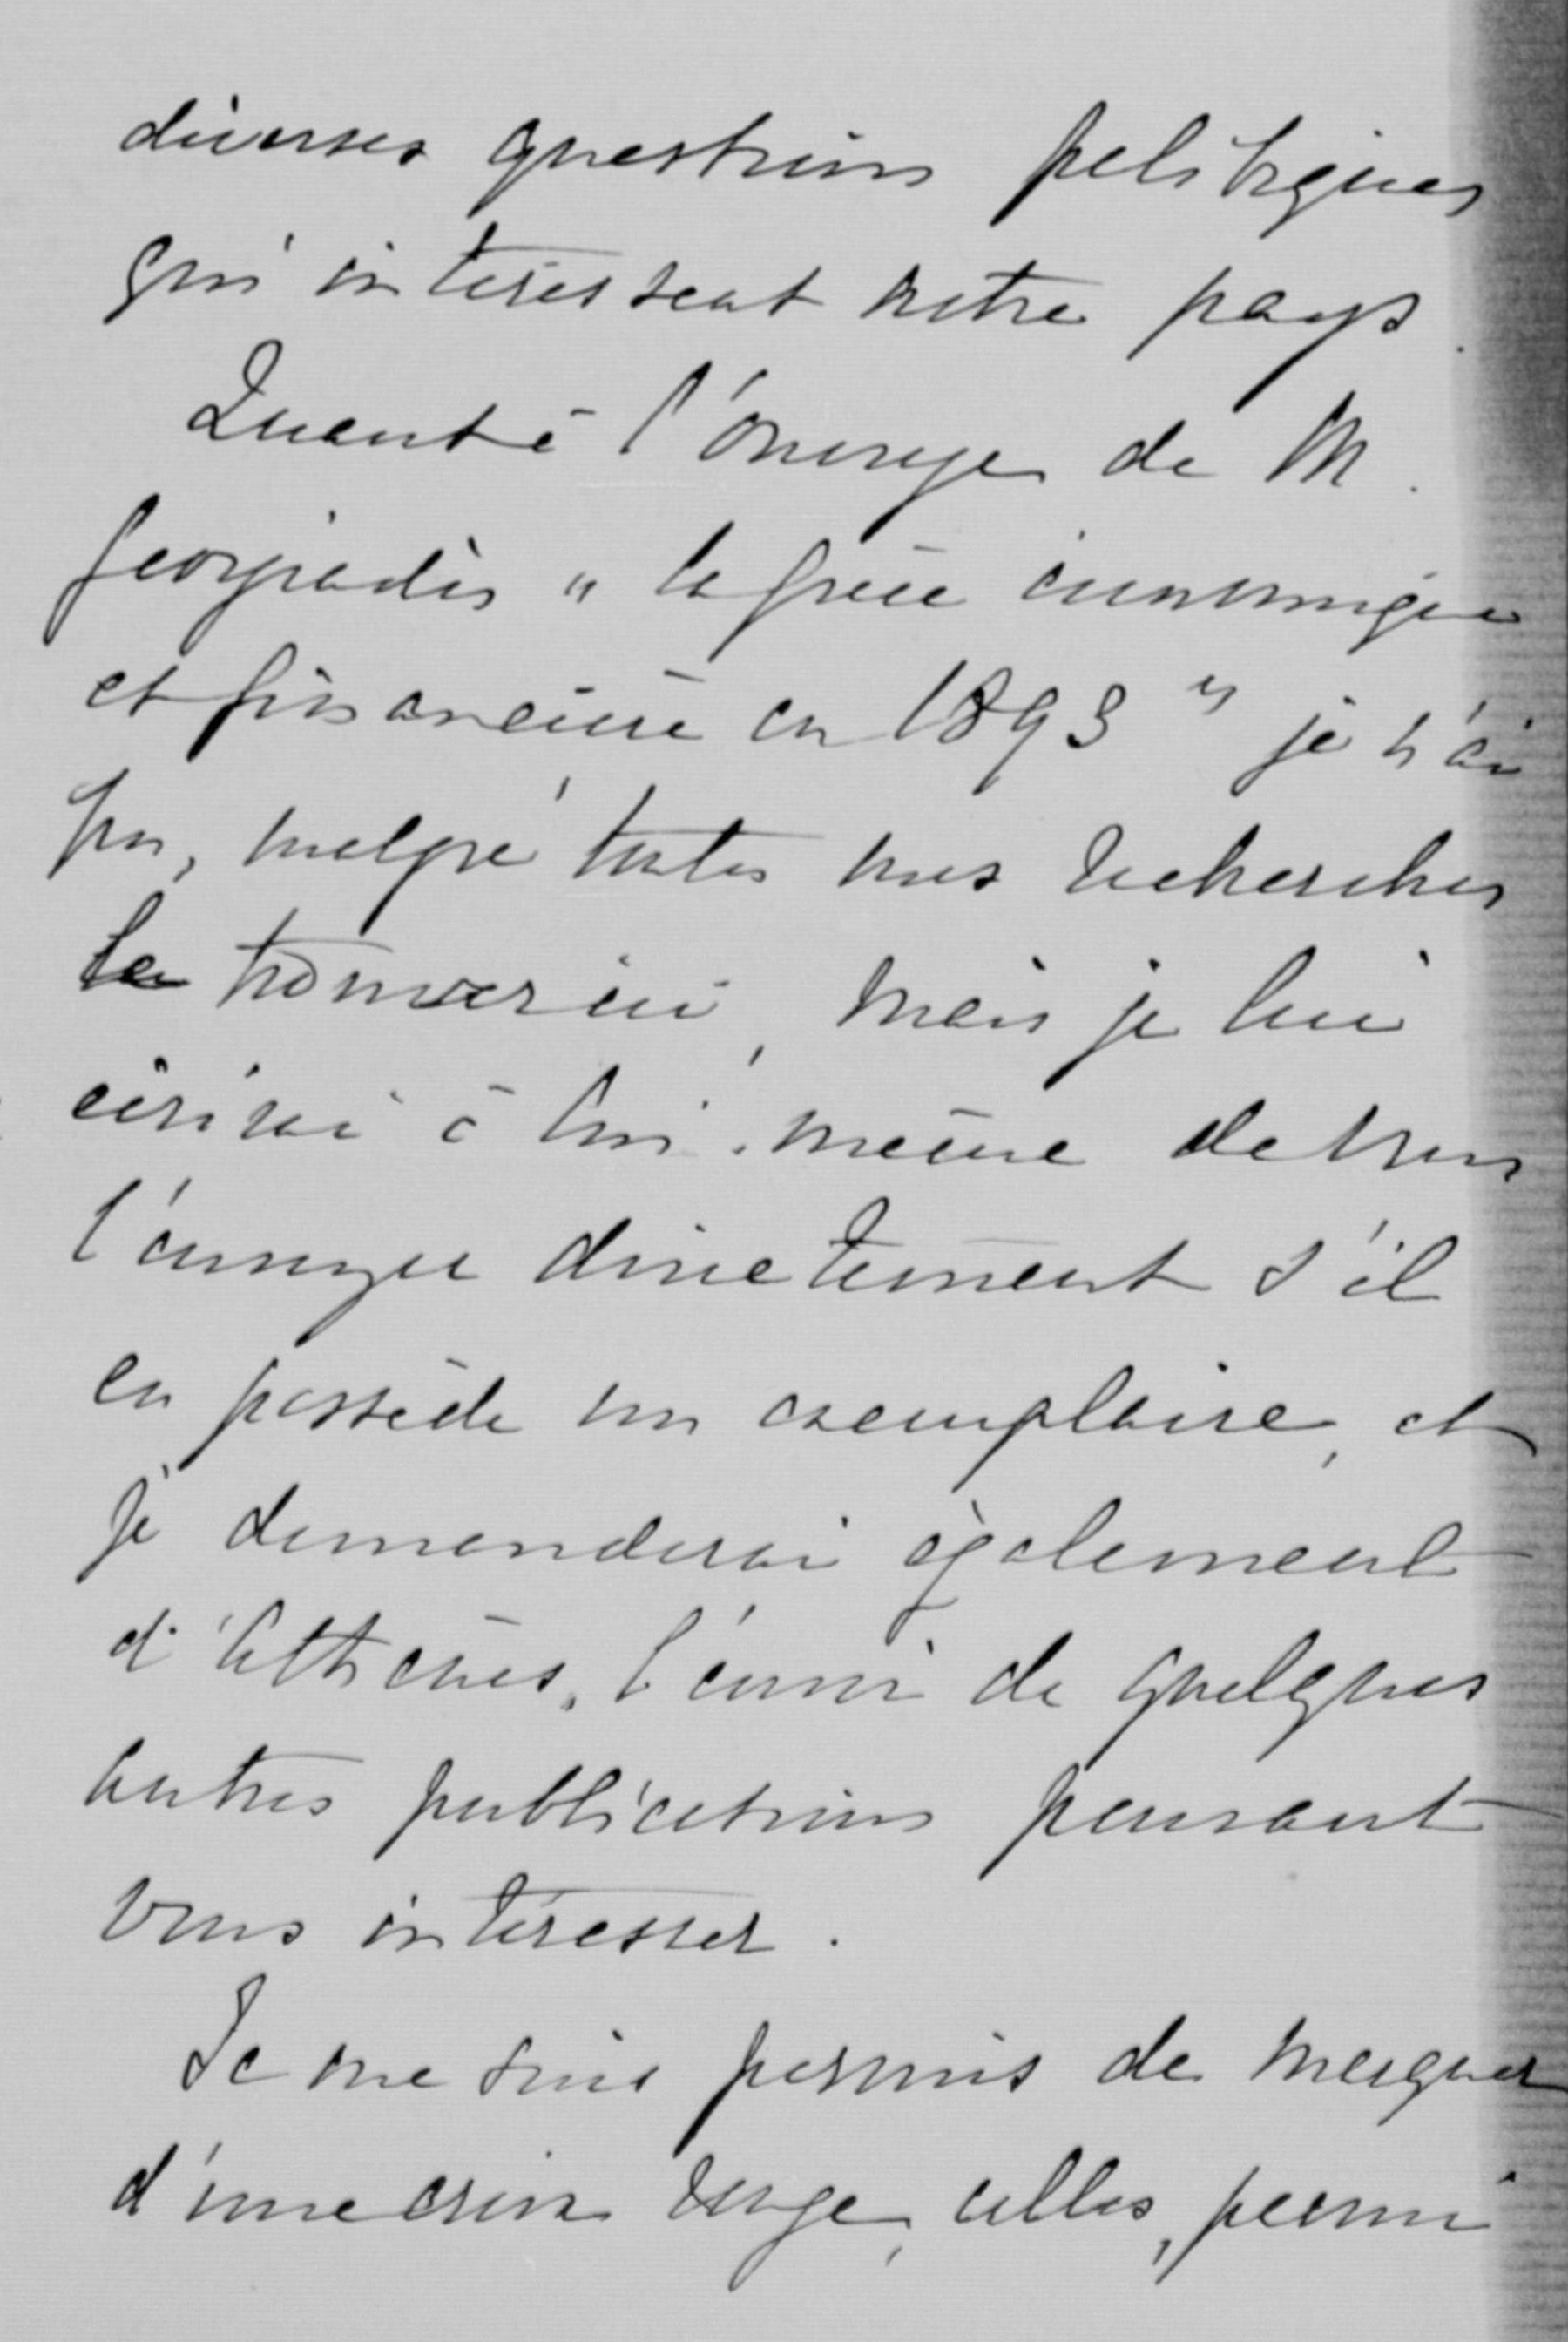 diverses questions politiques
qui intéressent notre pays.
Quant à l'ouvrage de M.
Georgiadès "la Grèce économique
et financière en 1893" je n'ai
pu, malgré toutes mes recherches
le trouver ici, mais je lui
écrirai à lui-même de vous
l'envoyer directement s'il
en possède un exemplaire, et
je demanderai également
d'Athènes, l'envoi de quelques
autres publications pouvant
vous intéresser.
Je me suis permis de marquer
d'une croix rouge, celles, parmi